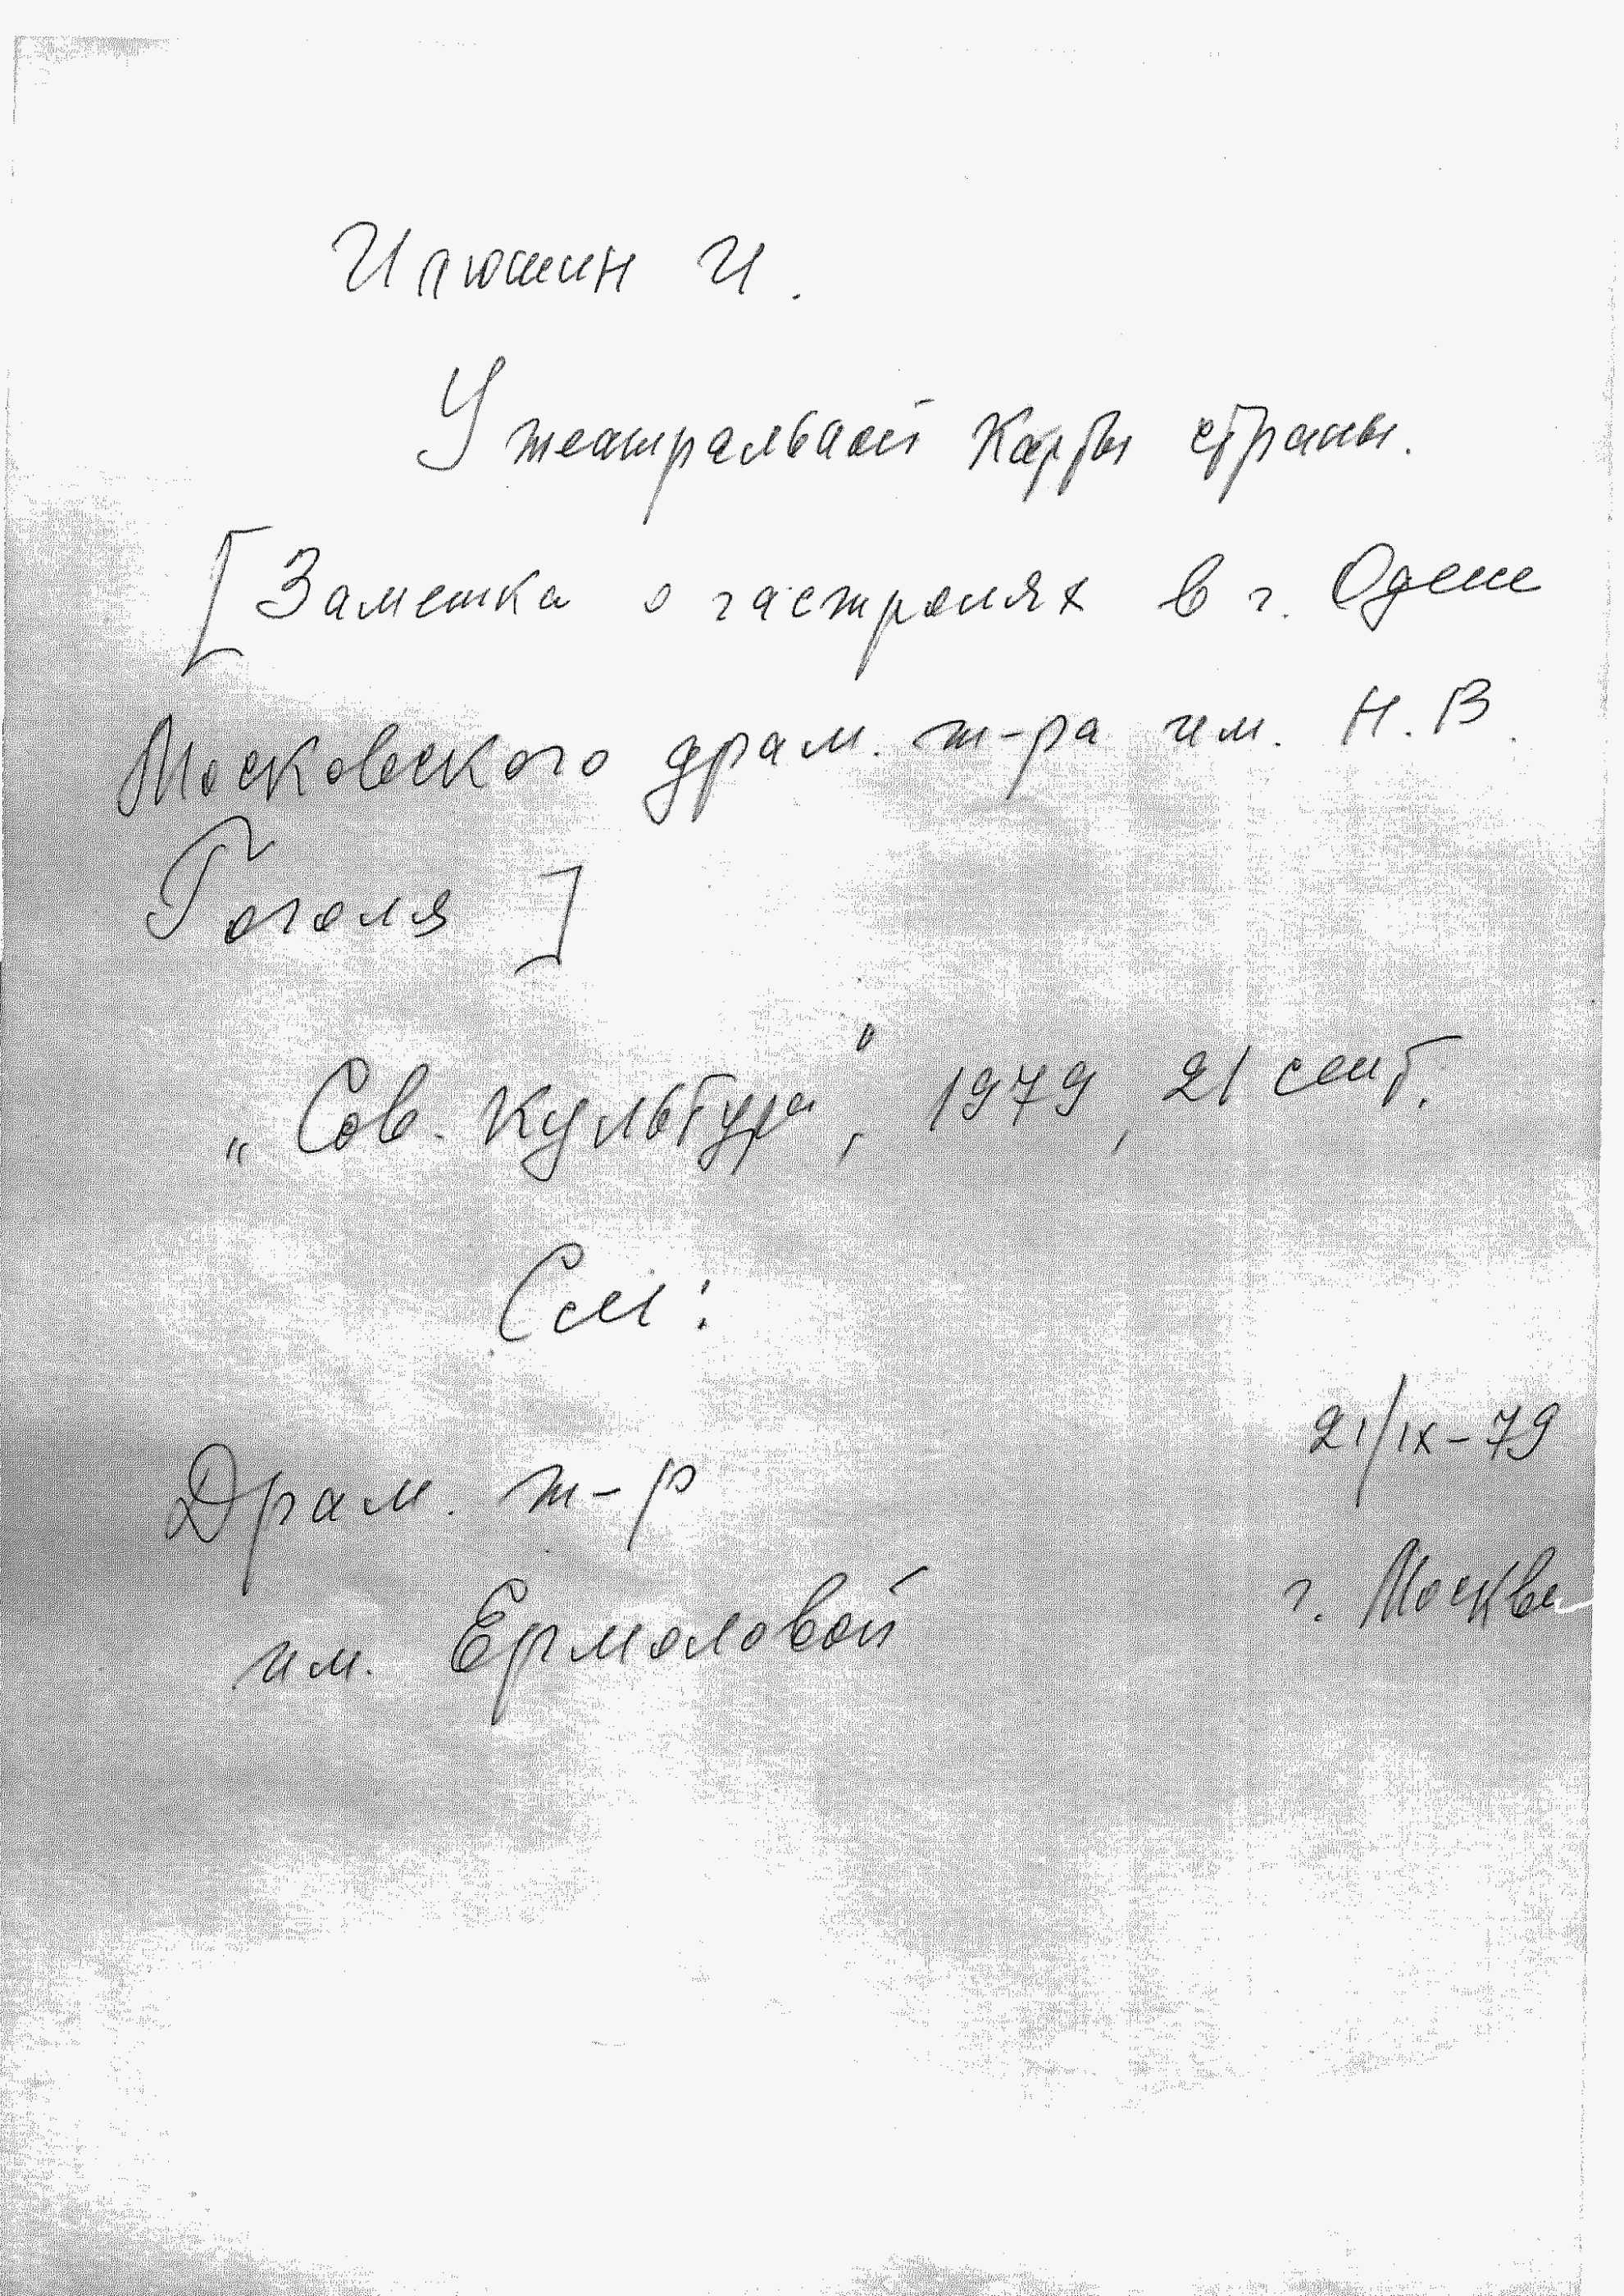 Илюшин И.
У театральной карты страны.
[Заметка о гастролях в г. Одессе
Московского драм. т-ра им. Н.В.
Гоголя]
„Сов. культура", 1979, 21 сент.
См:
21/IX-79
Драм. т-р
г. Москва
им. Ермоловой